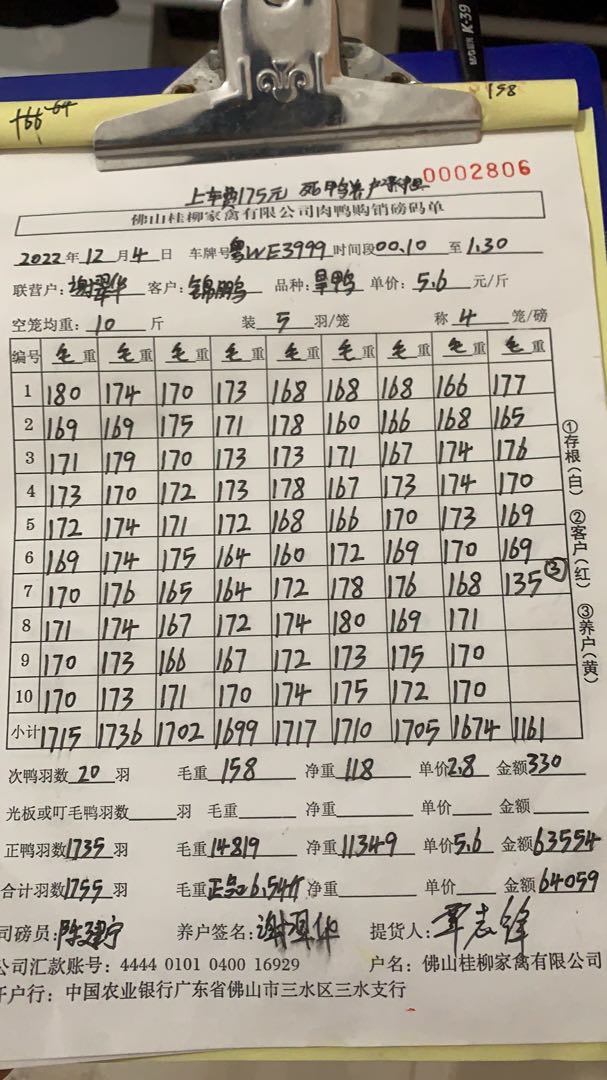 K-39
166 64
158
上车费175元 死鸭客户承担
0002806
佛山桂柳家禽有限公司肉鸭购销磅码单
2022年12月4日 车牌号粤WE3999 时间段00.10至1.30
联营户：谢翠华 客户：锦鹏 品种：旱鸭 单价：5.6元/斤
空笼均重：10斤 装5羽/笼 称4笼/磅
编号 毛重 毛重 毛重 毛重 毛重 毛重 毛重 毛重 毛重
1 180 174 170 173 168 168 168 166 177
2 169 169 175 171 178 160 166 168 165
3 171 179 170 173 173 171 167 174 176
4 173 170 172 173 178 167 173 174 170
5 172 174 171 172 168 166 170 173 169
6 169 174 175 164 160 172 169 170 169
7 170 176 165 164 172 178 176 168 135 ③
8 171 174 167 172 174 180 169 171
9 170 173 166 167 172 173 175 170
10 170 173 171 170 174 175 172 170
小计 1715 1736 1702 1699 1717 1710 1705 1674 1161
①存根（白） ②客户（红） ③养户（黄）
次鸭羽数20羽 毛重158 净重118 单价2.8 金额330
光板或叮毛鸭羽数 羽 毛重 净重 单价 金额
正鸭羽数1735羽 毛重14819 净重11349 单价5.6 金额63554
合计羽数1755羽 毛重正品6.54斤 净重 单价 金额64059
司磅员：陈建宁 养户签名：谢翠华 提货人：覃志锋
公司汇款账号：4444 0101 0400 16929 户名：佛山桂柳家禽有限公司
开户行：中国农业银行广东省佛山市三水区三水支行